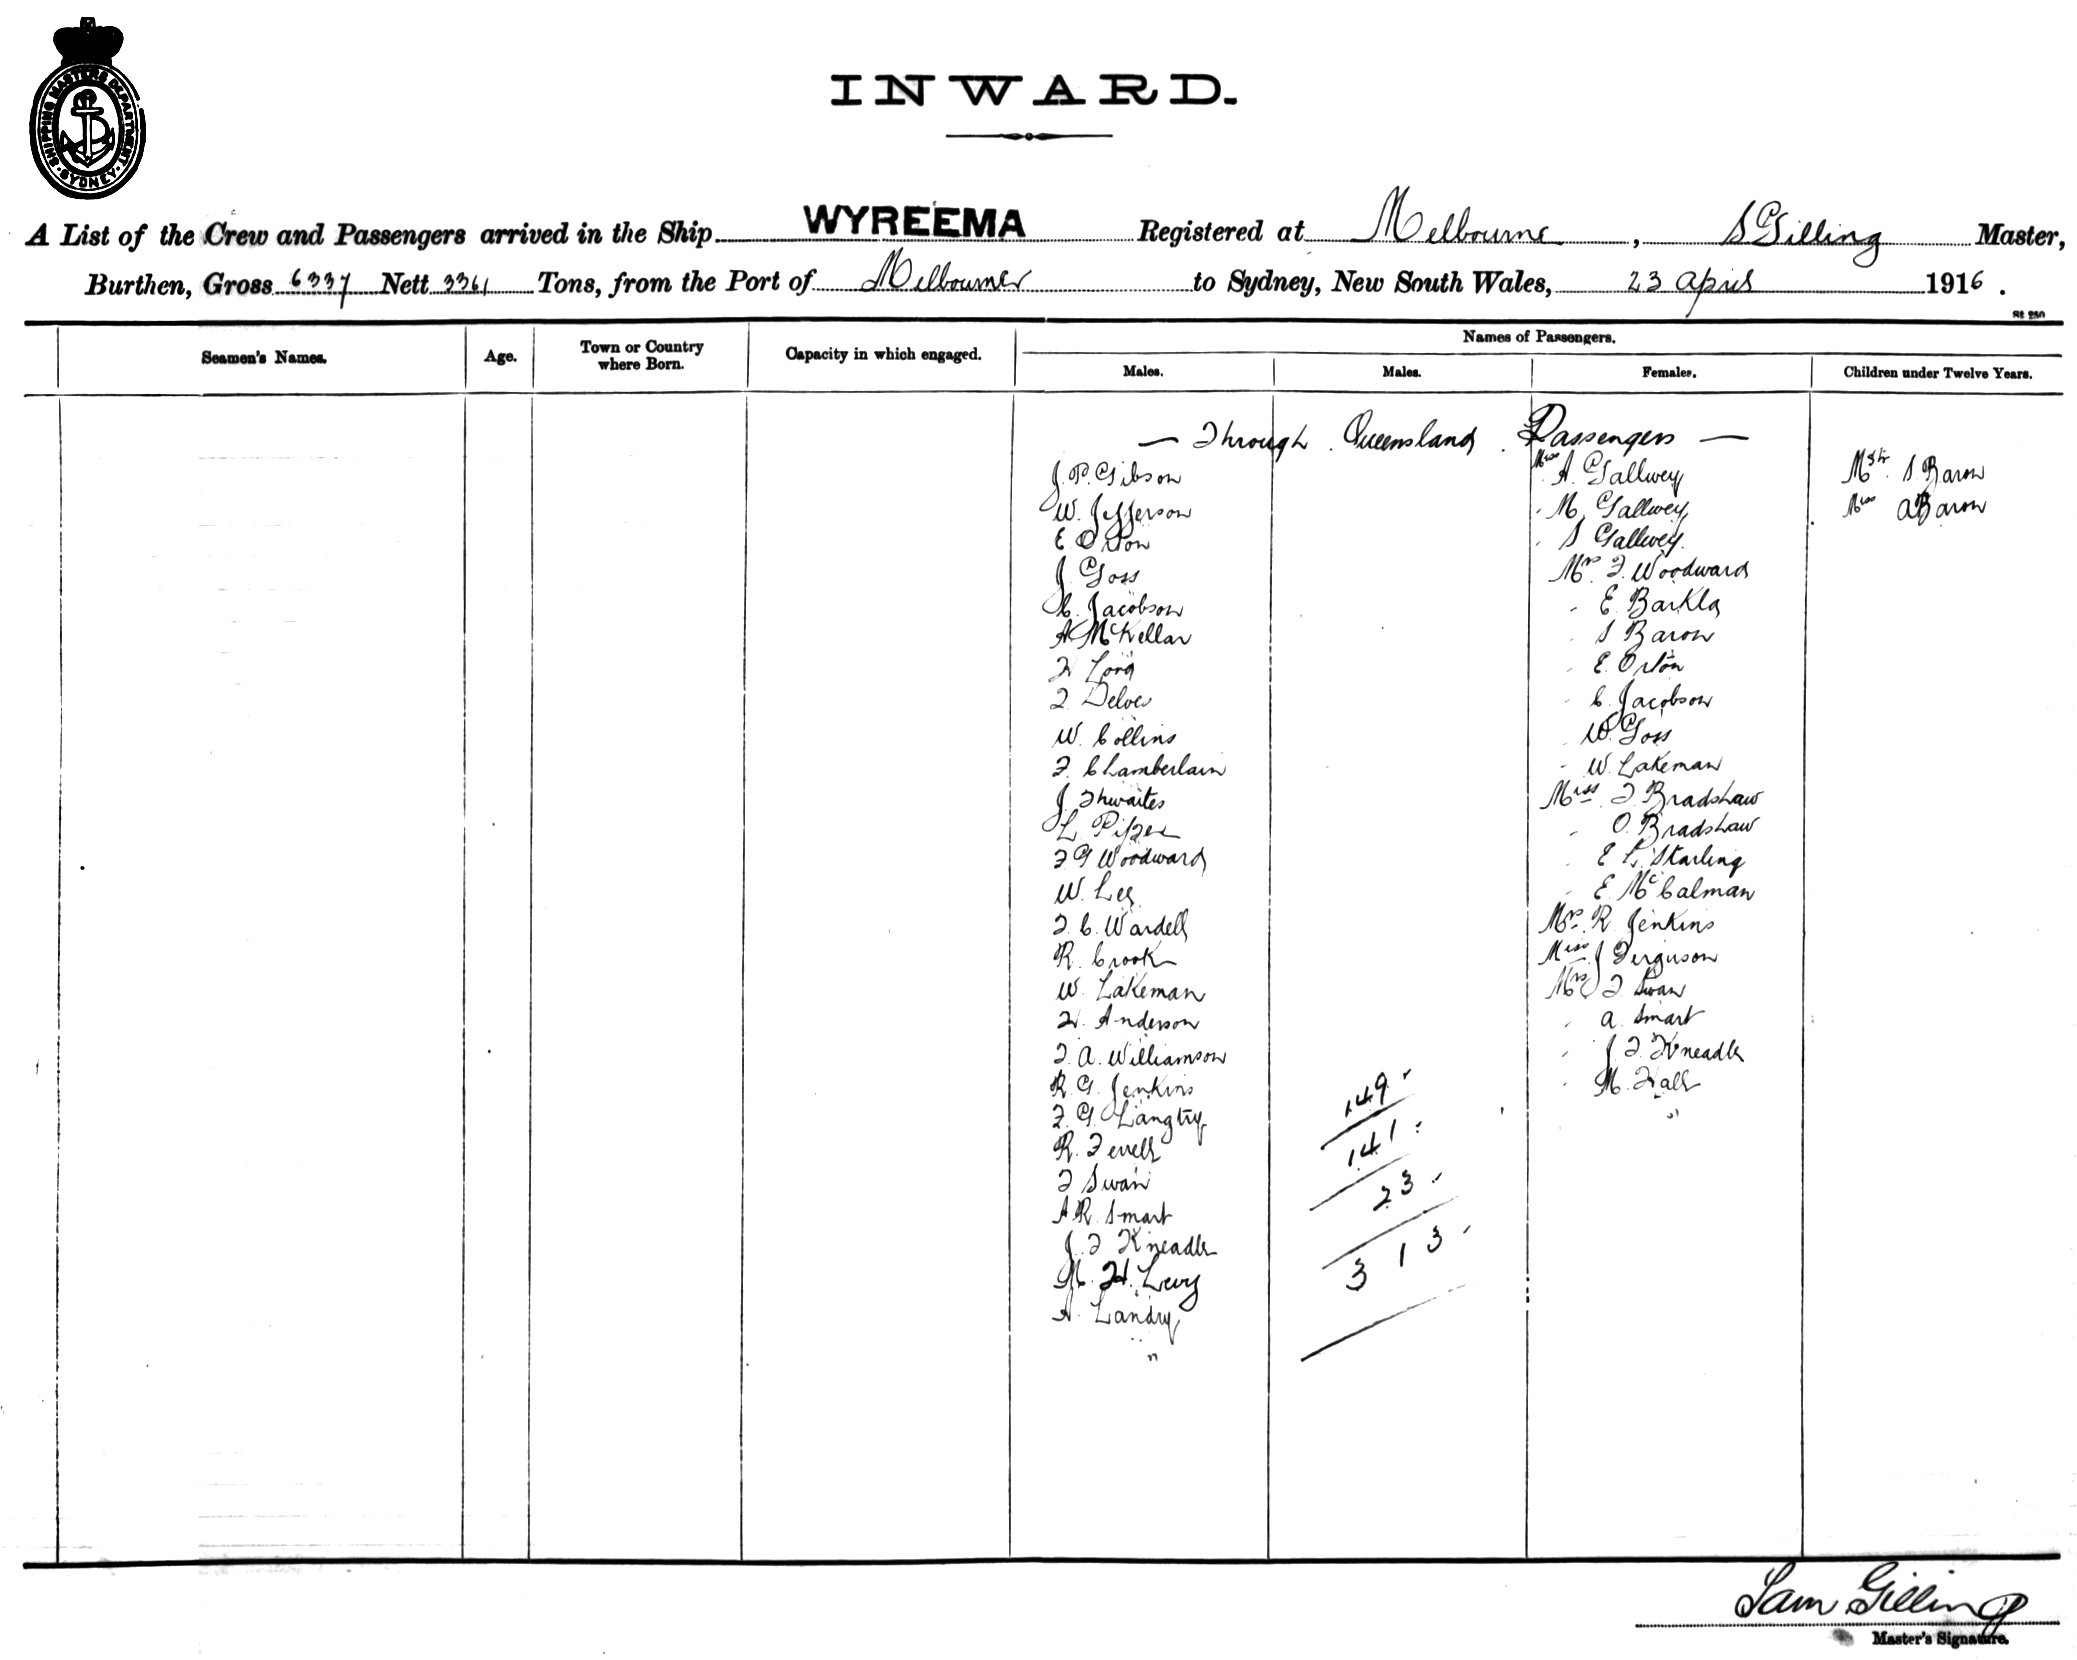 SHIPPING MASTERS DEPARTMENT
SYDNEY
INWARD.
A List of the Crew and Passengers arrived in the Ship WYREEMA Registered at Melbourne, S Gilling Master,
Burthen, Gross 6337 Nett 3361 Tons, from the Port of Melbourne to Sydney, New South Wales, 23 April 1916.
St 280
Seamen's Names. Age. Town or Country where Born. Capacity in which engaged. Names of Passengers.
Males. Males. Females. Children under Twelve Years.
— Through Queensland Passengers —
J. P. Gibson
W. Jefferson
E Orton
J Goss
C. Jacobson
A McKellar
Lord
Delves
W. Collins
F. Chamberlain
J Thwaites
L
F G Woodward
W. Lee
F. C. Wardell
R. Crook
W. Lakeman
H. Anderson
F. A. Williamson
R. G. Jenkins
F. G. Langtry
R.
F Swan
A R. Smart
J. F Kneadle
M. H. Levy
A. Landry
149
141
23
313
Miss A. Gallwey
M. Gallwey
S Gallwey
Mrs F. Woodward
E Barkla
S Baron
E. Orton
C. Jacobson
W. Goss
W. Lakeman
Miss F Bradshaw
O. Bradshaw
E L. Starling
E McCalman
Mrs R Jenkins
Miss J Ferguson
Mrs F Swan
A. Smart
J F Kneadle
M. Hall
Mstr. S Baron
Miss A Baron
Sam Gilling
Master's Signature.